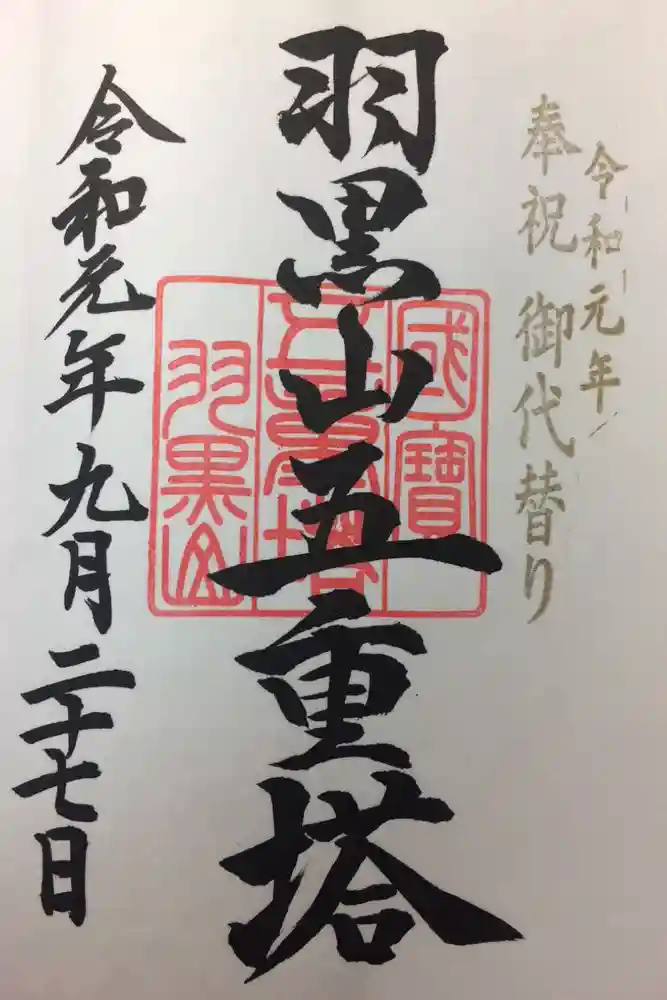 令和元年
奉祝 御代替り
羽黒山五重塔
國寶
五重塔
羽黒山
令和元年九月二十七日